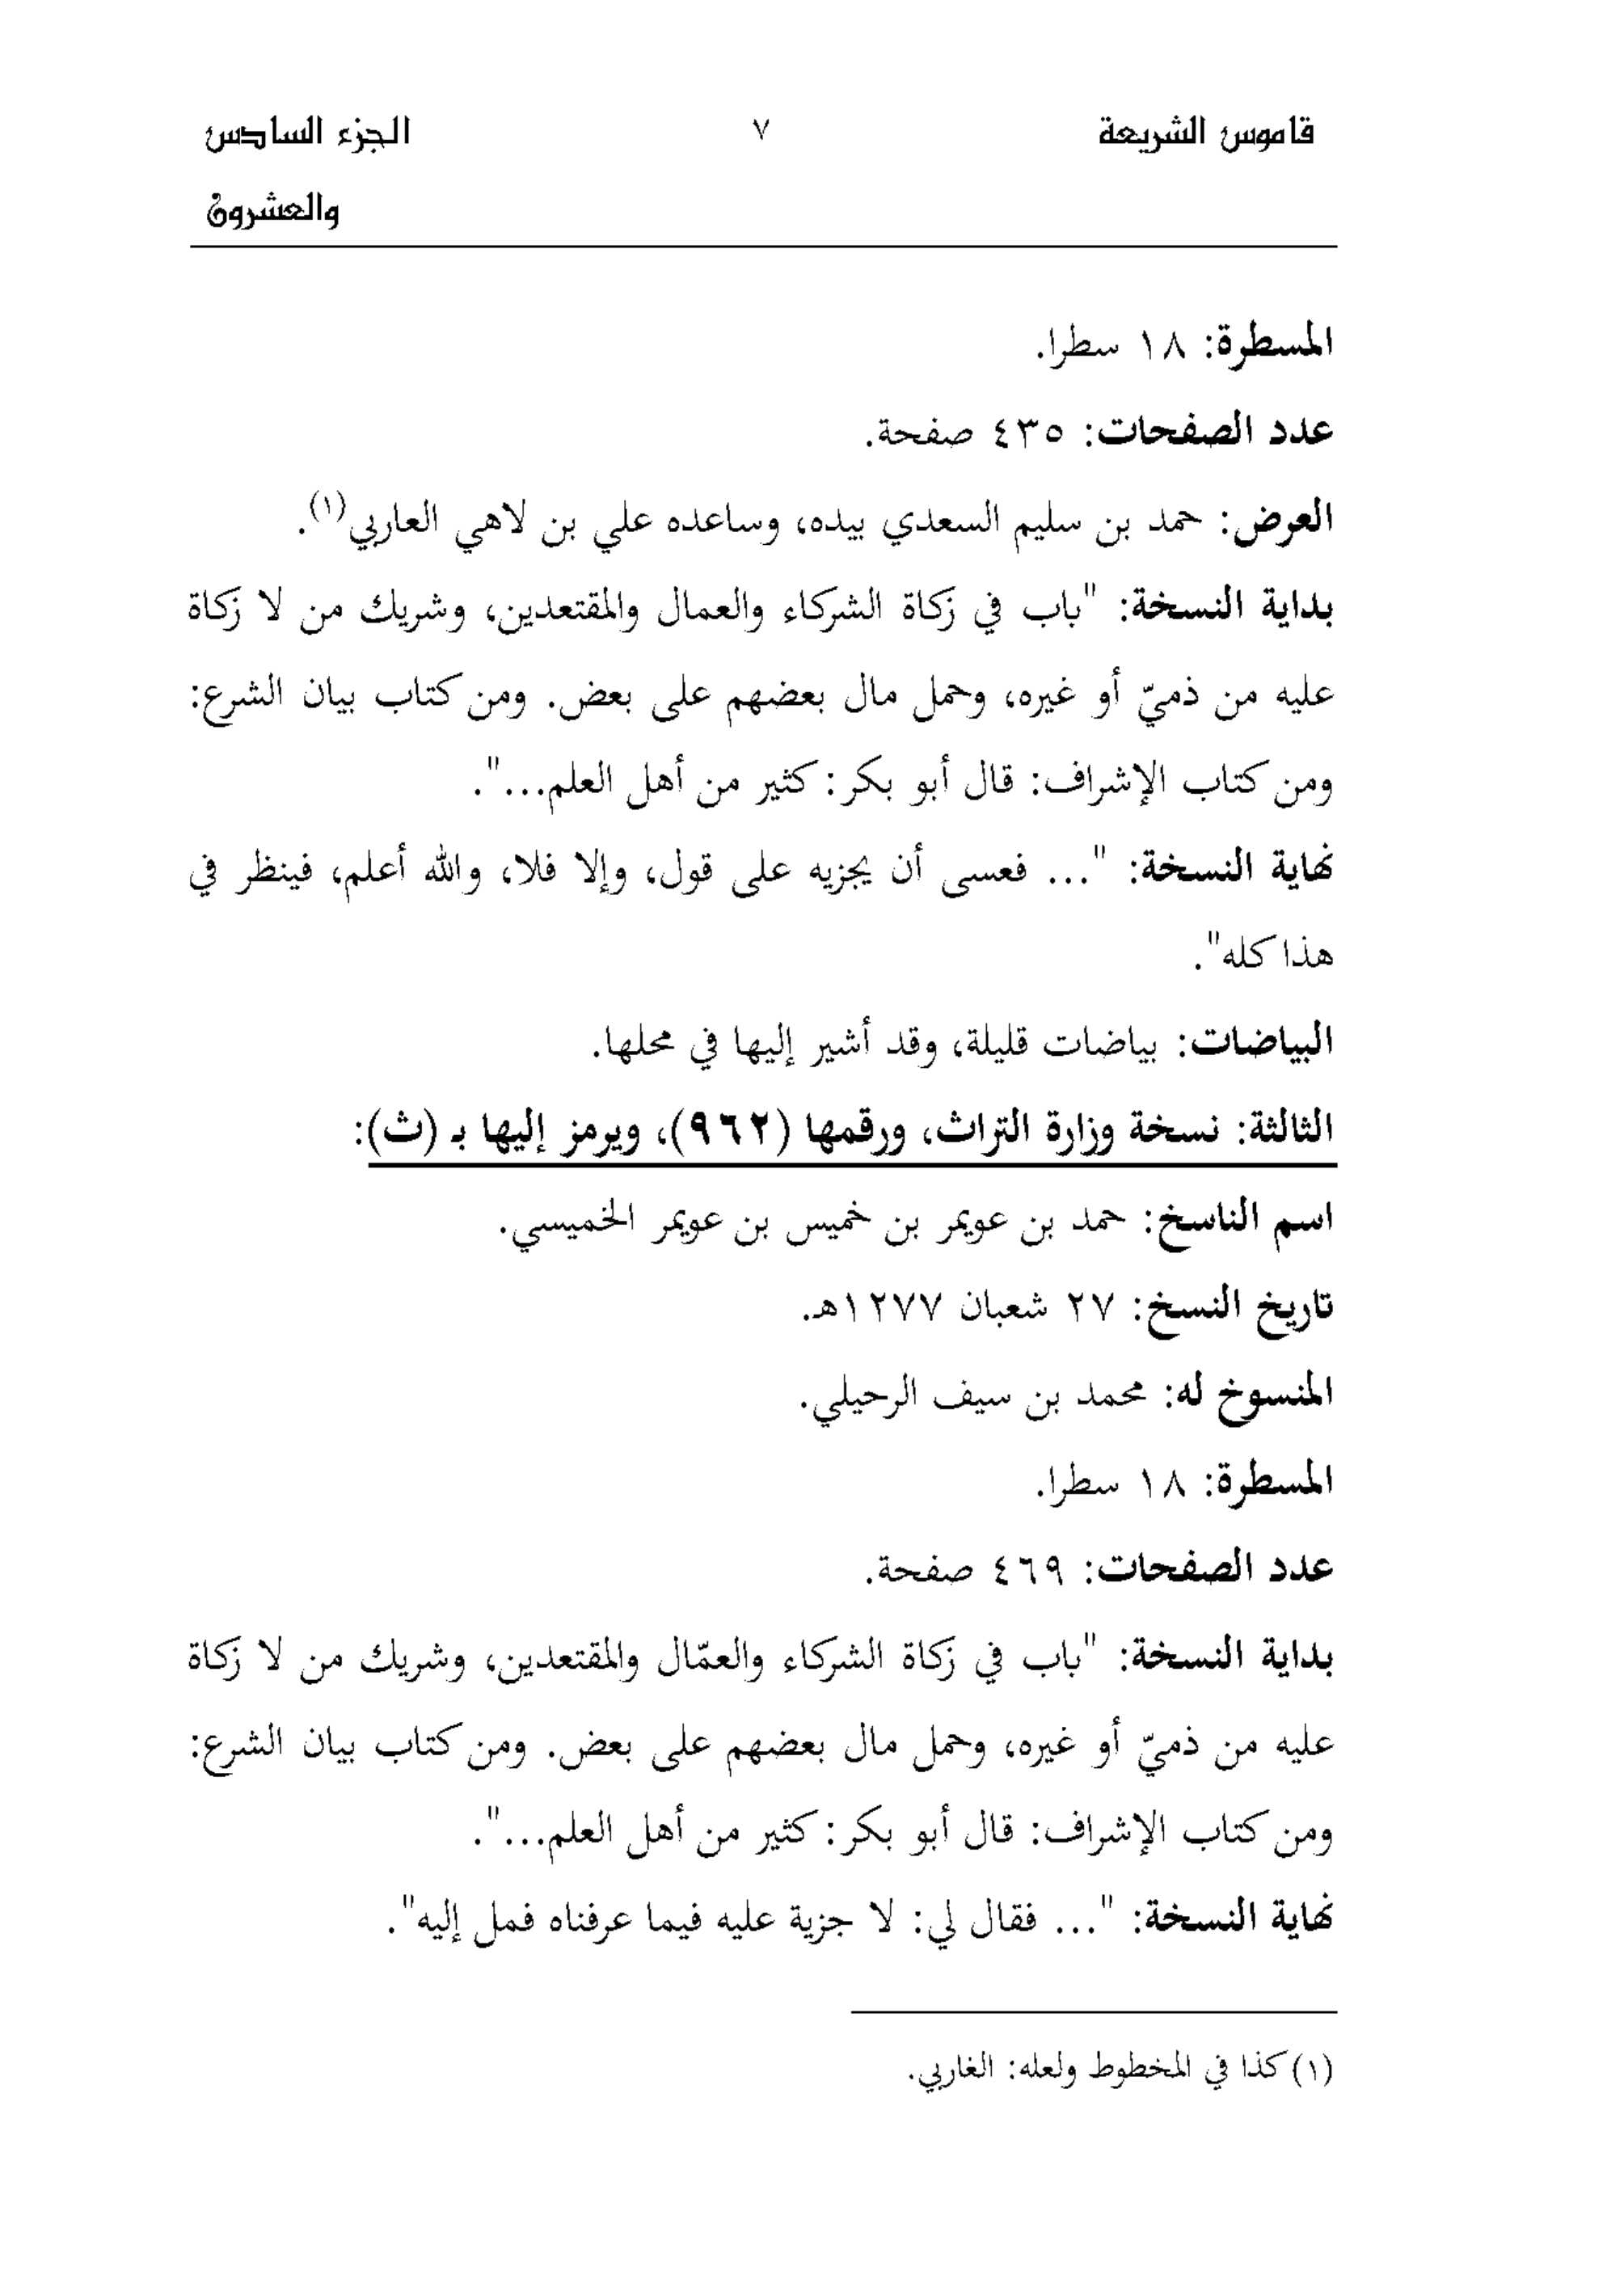 قاموس الشريعة ٧ الجزء السادس
والعشرون
المسطرة: ١٨ سطرا.
عدد الصفحات: ٤٣٥ صفحة.
العرض: حمد بن سليم السعدي بيده، وساعده علي بن لاهي العاربي(١).
بداية النسخة: "باب في زكاة الشركاء والعمال والمقتعدين، وشريك من لا زكاة
عليه من ذميّ أو غيره، وحمل مال بعضهم على بعض. ومن كتاب بيان الشرع:
ومن كتاب الإشراف: قال أبو بكر: كثير من أهل العلم...".
نهاية النسخة: "... فعسى أن يجزيه على قول، وإلا فلا، والله أعلم، فينظر في
هذا كله".
البياضات: بياضات قليلة، وقد أشير إليها في محلها.
الثالثة: نسخة وزارة التراث، ورقمها (٩٦٢)، ويرمز إليها بـ (ث):
اسم الناسخ: حمد بن عويمر بن خميس بن عويمر الخميسي.
تاريخ النسخ: ٢٧ شعبان ١٢٧٧هـ.
المنسوخ له: محمد بن سيف الرحيلي.
المسطرة: ١٨ سطرا.
عدد الصفحات: ٤٦٩ صفحة.
بداية النسخة: "باب في زكاة الشركاء والعمّال والمقتعدين، وشريك من لا زكاة
عليه من ذميّ أو غيره، وحمل مال بعضهم على بعض. ومن كتاب بيان الشرع:
ومن كتاب الإشراف: قال أبو بكر: كثير من أهل العلم...".
نهاية النسخة: "... فقال لي: لا جزية عليه فيما عرفناه فمل إليه".
(١) كذا في المخطوط ولعله: الغاربي.